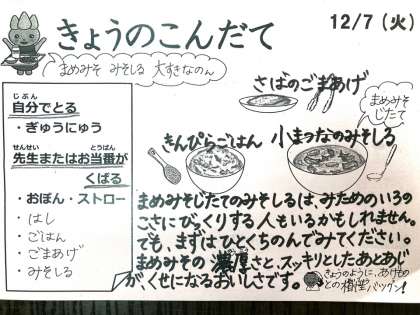 きょうのこんだて
12/7(火)
まめみそ みそしる 大すきなのん
さばのごまあげ
まめみそ
じたて
きんぴらごはん
小まつなのみそしる
じぶん
自分でとる
・ぎゅうにゅう
せんせい とうばん
先生またはお当番が
くばる
・おぼん・ストロー
・はし
・ごはん
・ごまあげ
・みそしる
まめみそじたてのみそしるは、みためのいろの
こさにびっくりする人もいるかもしれません。
でも、まずはひとくちのんでみてください。
まめみその濃厚さと、スッキリとしたあとあじ
が、くせになるおいしさです。
きょうのように、あげもの
との相性バツグン!